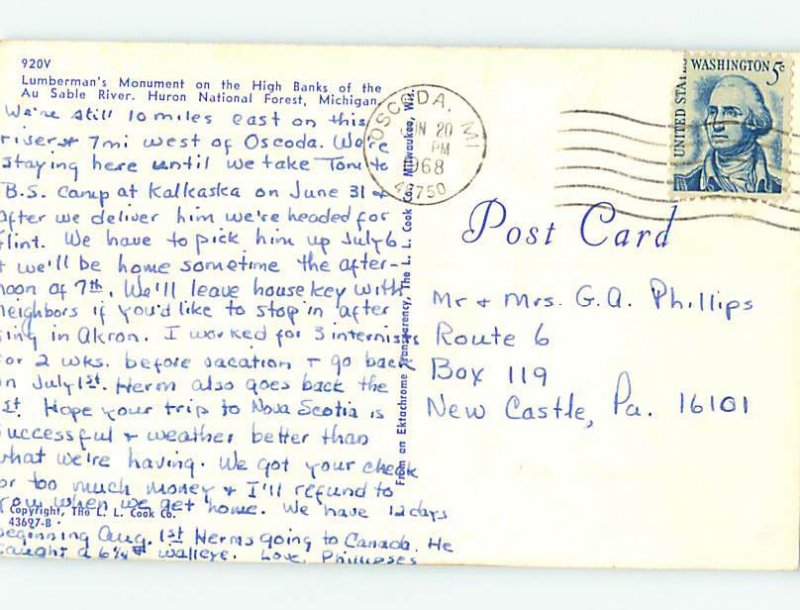 920V
Lumberman's Monument on the High Banks of the
Au Sable River. Huron National Forest, Michigan.
We're still 10 miles east on this
river & 7 mi west of Oscoda. We're
staying here until we take Tom to
B.S. Camp at Kalkaska on June 31 &
after we deliver him we're headed for
Flint. We have to pick him up July 6
+ we'll be home sometime the after-
noon of 7th. We'll leave house key with
neighbors if you'd like to stop in after
in Akron. I worked for 3 internists
for 2 wks. before vacation + go back
on July 1st. Herm also goes back the
1st. Hope your trip to Nova Scotia is
successful + weather better than
what we're having. We got your check
for too much money & I'll refund to
you when we get home. We have 12 days
beginning Aug. 1st Herms going to Canada. He
caught a 6¼# walleye. Love, Phillipses
Copyright, The L. L. Cook Co.
43627-B
From an Ektachrome Transparency, The L. L. Cook Co., Milwaukee, Wis.
OSCODA, MI
JUN 20
PM
1968
48750
UNITED STATES
WASHINGTON 5c
Post Card
Mr + Mrs. G.A. Phillips
Route 6
Box 119
New Castle, Pa. 16101